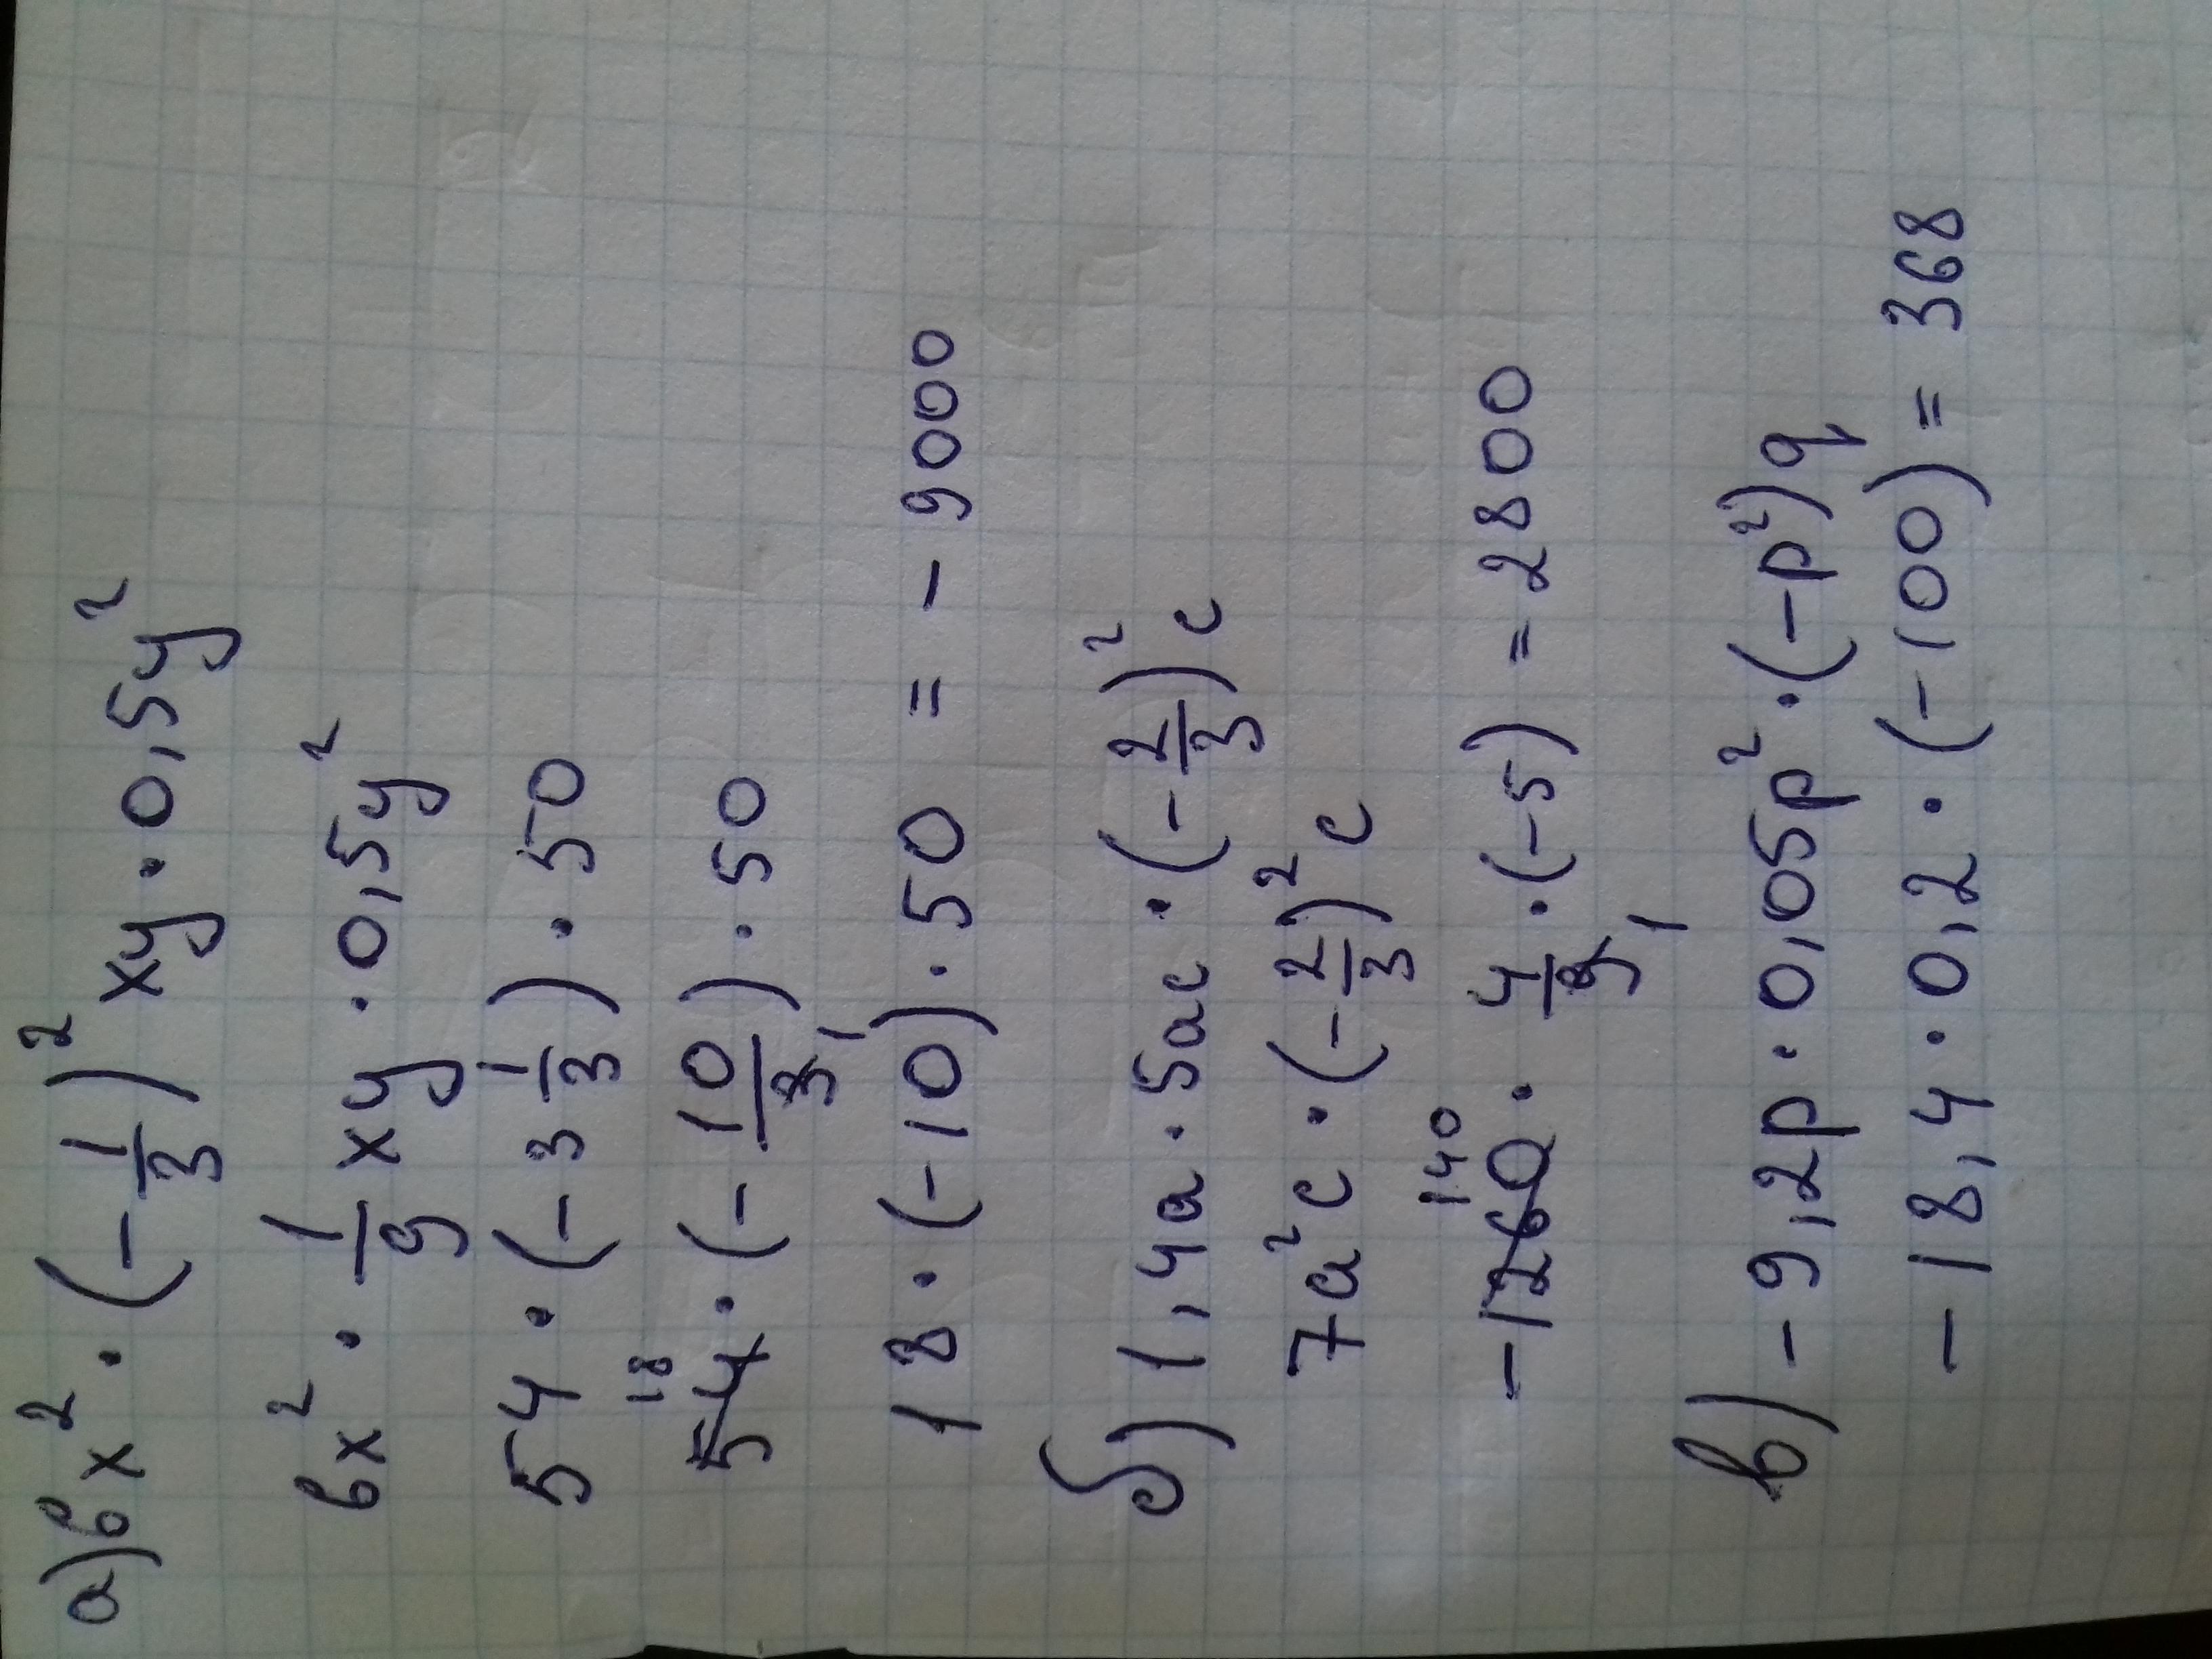 а) 6x² · (-1/3)² xy · 0,5y²
6x² · 1/9 xy · 0,5y²
54 · (-3 1/3) · 50
54 18 · (-10/3 1) · 50
18 · (-10) · 50 = -9000
б) 1,4a · 5ac · (-2/3)² c
7a²c · (-2/3)² c
-1260 140 · 4/9 1 · (-5) = 2800
в) -9,2p · 0,05p² · (-p²)q
-18,4 · 0,2 · (-100) = 368